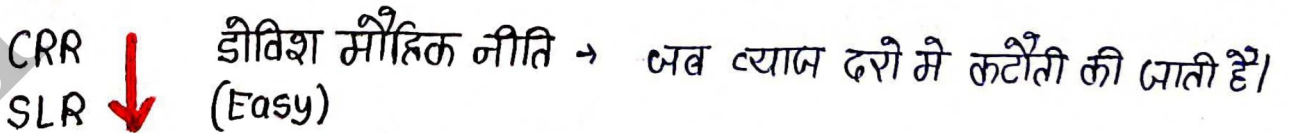 CRR ↓ डोविश मौद्रिक नीति → जब ब्याज दरो मे कटौती की जाती है।
SLR (Easy)